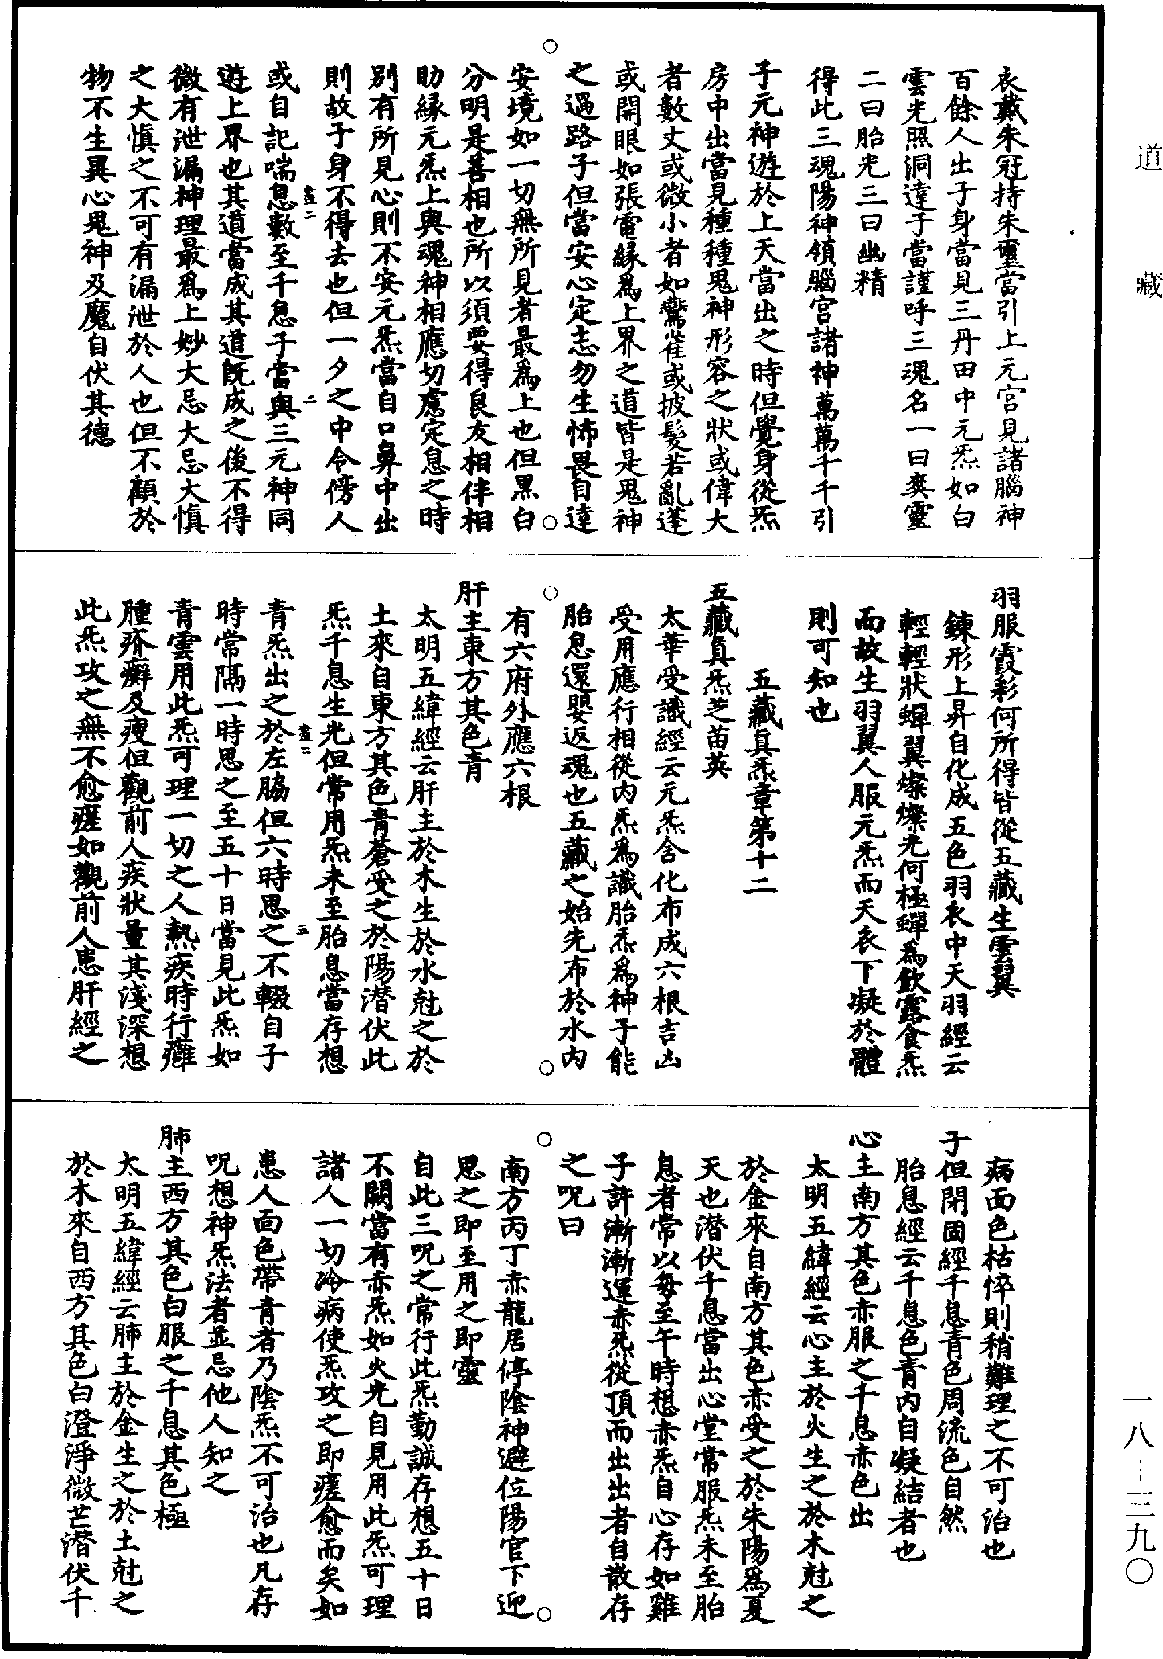 道藏
衣戴朱冠持朱璽當引上元宮見諸腦神
百餘人出子身當見三丹田中元炁如白
雲光照洞達子當謹呼三魂名一曰爽靈
二曰胎光三曰幽精
得此三魂陽神領腦宮諸神萬萬千千引
子元神遊於上天當出之時但覺身從炁
房中出當見種種鬼神形容之狀或偉大
者數丈或微小者如鸞雀或披髮若亂蓬
或開眼如張電緣爲上界之道皆是鬼神
之過路子但當安心定志勿生怖畏自達
安境如一切無所見者最爲上也但黑白
分明是善相也所以須要得良友相伴相
助緣元炁上與魂神相應切慮定息之時
別有所見心則不安元炁當自口鼻中出
則故子身不得去也但一夕之中令傍人
或自記喘息數至千息子當與三元神同
遊上界也其道當成其道旣成之後不得
微有泄漏神理最爲上妙大忌大忌大慎
之大慎之不可有漏泄於人也但不顧於
物不生異心鬼神及魔自伏其德
羽服霞彩何所得皆從五藏生雲翼
鍊形上昇自化成五色羽衣中天羽經云
輕輕狀蟬翼燦燦光何極蟬爲飲露食炁
而故生羽翼人服元炁而天衣下凝於體
則可知也
五藏真炁章第十二
五藏真炁芝苗英
太華受識經云元炁含化布成六根吉凶
受用應行相從內炁爲識胎炁爲神子能
胎息還嬰返魂也五藏之始先布於水內
有六府外應六根
肝主東方其色青
太明五緯經云肝主於木生於水尅之於
土來自東方其色青蒼受之於陽潛伏此
炁千息生光但常用炁未至胎息當存想
青炁出之於左脇但六時思之不輟自子
時常隔一時思之至五十日當見此炁如
青雲用此炁可理一切之人熱疾時行癰
腫疥癬及瘦但觀前人疾狀量其淺深想
此炁攻之無不愈瘥如觀前人患肝經之
病面色枯悴則稍難理之不可治也
子但閉固經千息青色周流色自然
胎息經云千息色青內自凝結者也
心主南方其色赤服之千息赤色出
太明五緯經云心主於火生之於木尅之
於金來自南方其色赤受之於朱陽爲夏
天也潛伏千息當出心堂常服炁未至胎
息者常以每至午時想赤炁自心存如雞
子許漸漸運赤炁從頂而出出者自散存
之呪曰
南方丙丁赤龍居停陰神避位陽官下迎
思之即至用之即靈
自此三呪之常行此炁勤誠存想五十日
不闕當有赤炁如火光自見用此炁可理
諸人一切冷病使炁攻之即瘥愈而矣如
患人面色帶青者乃陰炁不可治也凡存
呪想神炁法者並忌他人知之
肺主西方其色白服之千息其色極
大明五緯經云肺主於金生之於土尅之
於木來自西方其色白澄淨微芒潛伏千
一八—三九〇